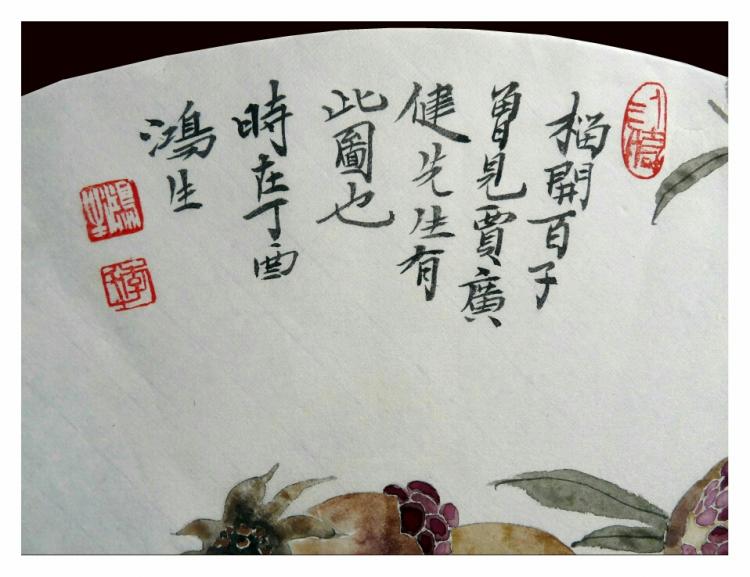 榴開百子
曾見賈廣
健先生有
此圖也
時在丁酉
鴻生